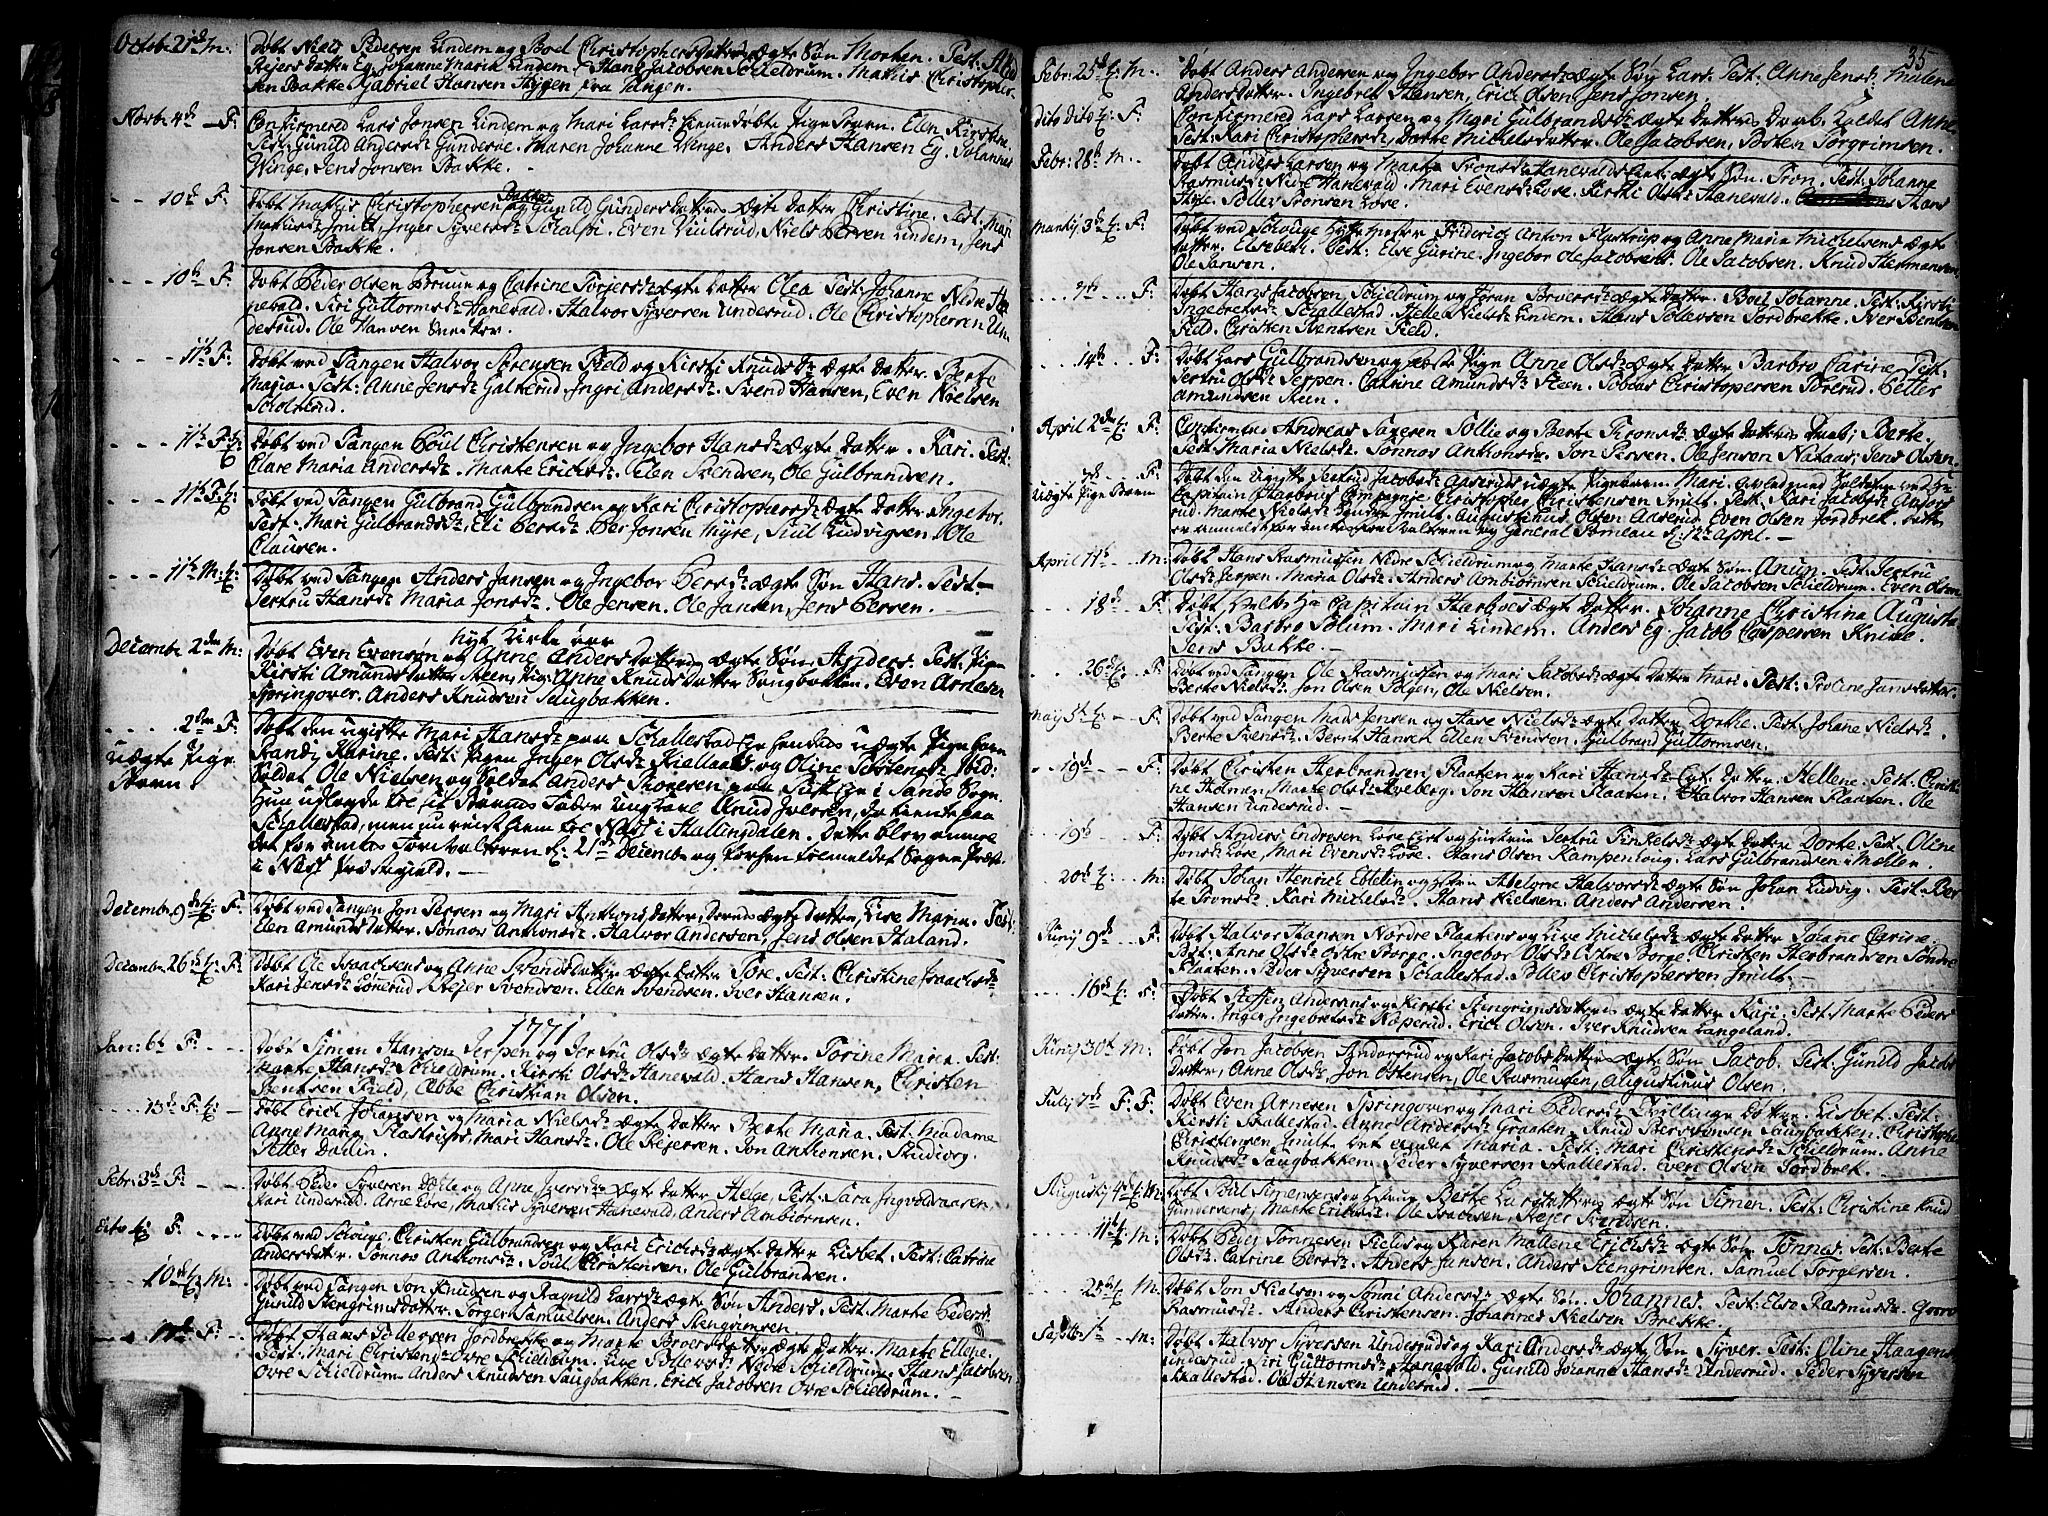 Octobr 21de M: Døbt Niels Pedersen Lindem og Boel Christophersdatters ægte Søn Morten. Test:
Rejersdatter Eg. Johanne Maria Lindem, Hans Jacobsen Schieldrum. Mathis Christopher-
sen Bakke, Gabriel Hansen fra Tangen.
Novbr 4de F: Confirmered Lars Jonsen Lindem og Mari Larsd: døbte Pige Barn. Elen Kirstine.
Test: Gunild Andersd: Gundersøe. Maren Johanne Wenge. Anders Hansen Eg. Johannes
Winge, Jens Jonsen Bakke.
10de F. Døbt Mathis Christophersen Bakke og Gunild Gundersdatters Ægte datter Christine. Test: Mari
Mathisd: Smitt, Inger Syversd: Schalst. Even Vulsrud, Niels Persen Lindem, Jens
Jonsen Bakke.
10de F. Døbt Peder Olsen Bruun og Catrine Torjersd: ægte datter Olea Test: Johanne Nedre Ha-
nevald. Siri Guttormsd: Hanevald. Halvor Syversen Underrud. Ole Christophersen Un-
derrud. Ole Hansen
11te F: Døbt ved Tangen Halvor Sørensen Field og Kirsti Knudsd: ægte datter. Berte
Maria. Test: Anne Jensd: Galterud. Ingri Andersd: Svend Hansen, Even Nielsen
Scholserud.
11te F: Døbt ved Tangen Poul Christensen og Ingebor Hansd: ægte datter. Kari. Test:
Clare Maria Andersd: Marte Ericksd: Ellen Svendsen, Ole Gulbrandsen.
11te F: Døbt ved Tangen Gulbrand Gulbrandsen og Kari Christophersd: ægte datter Ingebor.
Test: Mari Gulbrandsd: Eli Persd: Per Jonsen Myre, Siul Ludvigsen. Ole
Clausen.
11te M: Døbt ved Tangen Anders Jansen og Ingebor Persd: ægte Søn Hans. Test:
Jertru Hansd: Maria Jonsd: Ole Jensen. Ole Jansen, Jens Persen.
Nyt Kirke aar
Decembr 2den M: Døbt Even Evensøn og Anne Andersdatters ægte Søn Anders. Test: Pigen
Kirsti Amundsdatter Steen, Pig: Anne Knudsdatter Saugbakken. Even Arnesen
Springover. Anders Knudsen Saugbakken.
2den F: Døbt den ugifte Mari Hansd: paa Schallestad hendes uægte Pige barn
uægte Pige Barn Randi Karine. Test: Pigen Inger Olsd: Kiellaas. og Oline Torstensd: ibid:
Soldat Ole Nielsen og Soldat Anders Thoresen paa i Sande Sogn.
Hun udlagde til sit Barns Fader Ungkarl Knud Iversen, da tiente paa
Schallestad, men nu reist hiem til Næss i Hallingdalen. Dette blev anmel-
det for amtes Forvalteren d: 21de Decembr og tilmeldet Sogne Præst
i Næss Prestegield.
Decembr 9de F. Døbt ved Tangen Jon Persen og Mari Anthonisdatters ægte datter, Live Maria. Test:
Elen Amundsdatter. Tonnor Anthonsd: Halvor Andersen, Jens Olsen Haland.
Decembr 26de F: Døbt Ole Isaachsens og Anne Svendsdatters ægte datter Tore. Test: Christine Isaachsd:
Kari Jensd: Lønerud, Rejer Svendsen. Ellen Svendsen. Iver Hansen.
1771
Jan: 6te F. Døbt Simen Hansen Jerpen og Jertru Olsd: ægte datter. Torine Maria. Test:
Marte Hansd: Schieldrum. Kirsti Olsd: Hanevald. Hans Hansen, Christen
Bentsen Field, Ebbe Christian Olsen.
13de F. Døbt Erich Johansen og Maria Nielsd: ægte datter Berte Maria. Test: Madame
Anne Maria Flastrups, Mari Hansd: Ole Rejersen. Jon Anthonsen. Studiosus
Petter Dodin.
Febr: 3de F. Døbt Peder Syversen og Anne Iversd: ægte datter Helge, Test: Sara Ingvoldsaasen.
Kari Underrud. Arne Lose, Mathis Syversen Hanevald, Anders Ambiørnsen.
F. Døbt ved Schouge, Christen Gulbrandsen og Kari Erichsd: ægte datter Lisbet. Test: Catrine
Andersdater. Tonnor Anthonsd: Poul Christensen. Ole Gulbrandsen.
10de M: Døbt ved Tangen Jon Knudsen og Ragnild Larsd: ægte Søn Anders. Test: Marte Pedersd:
Gunild Stengrimsdatter. Torger Samuelsen. Anders Stengrimsen.
F. Døbt Hans Tollefsen Jordbrekke og Marte Broersdatters ægte datter. Marte Ellene.
Test: Mari Christensd: Øvre Schieldrum. Live Tollevsd: Nedre Schieldrum. Hans Jacobsen
Øvre Schieldrum. Anders Knudsen Saugbakken. Erich Jacobsen Øvre Schieldrum.
35
Febr: 25de M. Døbt Anders Andersen og Ingebor Andersd: ægte Søn Lars. Test: Anne Jensd: Malene
Andersdatter. Ingebret Hansen, Erich Olsen, Jens Jonsen.
dito dito F: Confirmered Lars Larsen og Mari Gulbrandsd: ægte datters Daab. kaldet Anne
Test: Kari Christophersd: Dorte Michelsdatter. Ole Jacobsen, Torgrimsen.
Febr: 28de M. Døbt Anders Larsen og Marte Tronsd: Hanevalds ægte Søn. Tron. Test: Johanne
Rasmusd: Nedre Hanevald. Mari Evensd: Lose. Kirsti Olsd: Hanevald. Hans
Tollev Tronsen Lose.
Martij 3de F: Døbt ved Schouge Friderich Anton Flastrup og Anne Maria Michelsens ægte
datter. Elsebeth. Test: Else Gurine. Ingebor Ole Jacobsens. Ole Jacobsen. Knud Hermansen
Ole Jansen.
F: Døbt Hans Jacobsen Schieldrum og Jøran Broersd: ægte datter. Boel Johanne. Test: Kirsti
Ingebretsd: Schallestad. Helle Nielsd: Lindem. Hans Tollevsen Jordbrekke. Iver Bentsen
Field. Christen Bentsen Field.
14de F: Døbt Lars Gulbrandsen og Anne Olsd: ægte datter Barbro Carine. Test:
Jertru Olsd: Jerpen. Catrine Amundsd: Steen. Tobias Christophersen Torerud. Petter
Amundsen Steen.
April 2den F. Confirmered Andreas Tagesen Tollie og Berte Tronsd: ægte datters Daab; Berte.
Test: Maria Nielsd: Tonnor Anthonsd: Jon Persen. Ole Jensen Nataas, Jens Olsen.
7de F. Døbt den ugifte Jertrud Jacobsd: Aaseruds uægte Pigebarn. Mari. avlet med Soldaten ved
Uægte Pige Barn Capitain Harboes Compagnie Christopher Christensen Smitt. Test: Kari Jacobsd: Aase-
rud. Marte Nielsd: Smitt. Augustinus Olsen Aaserud. Even Olsen Jordbrek. Dette
er anmeldt for og General Pomeau d: 12te april.
April 11te M: Døbt Hans Rasmussen Nedre Schieldrum og Marte Hansd: ægte Søn. Anun. Test: Jertru
Olsd: Jerpen. Maria Olsd: Anders Ambiørnsen Schieldrum. Ole Jacobsen Schieldrum. Even Olsen
18de F. Døbt Capitain Harboes ægte datter. Johanne Christina Augusta
Test: Barbro Solum. Mari Lindem. Anders Eg. Jacob Caspersen Knive.
Jens Bakke.
26de F. Døbt ved Tangen Ole Rasmussen og Mari Jacobsd: ægte datter Mari. Test: Troline Jansdatter.
Berte Nielsd: Jon Olsen Bolger, Ole Nielsen.
May 5te F: Døbt ved Tangen Mads Jensen og Aase Nielsd: ægte datter Dorthe. Test: Johane Nielsd:
Berte Svensd: Bernt Hansen Ellen Svendsen. Gulbrand Guttormsen.
19de F: Døbt Christen Herbrandsen Flaaten og Kari Hansd: Egt. datter. Hellene. Test: Christi-
ne Holmen. Marte Olsd: Aveberg. Jon Hansen Flaaten. Halvor Hansen Flaaten. Ole
Hansen Underrud.
19de F: Døbt Anders Endresen Lose og Jertru Tinkelsd: ægte datter Dorte. Test. Oline
Jonsd: Lose, Mari Evensd: Lose. Hans Olsen Kampenhaug. Lars Gulbrandsen i Møllen.
20de M: Døbt Johan Henrich Ebbelin og Abelone Halvorsd: ægte Søn Johan Ludvig. Test: Ber-
te Tronsd: Kari Michelsd: Hans Nielsen. Anders Andersen.
Junij 9de F: Døbt Halvor Hansen Nordre Flaatens og Live Michelsd: ægte datter Johanne Carine.
Test: Anne Olsd: Østre Borge. Ingebor Olsd: Østre Borge. Christen Herbrandsen Søndre
Flaaten. Peder Syversen Schallestad. Tollev Christophersen Smitt.
16de Døbt Steffen Andersens og Kirsti Stengrimsdatters ægte datter Kari. Test: Marte Peders
datter. Inger Ingebretsd: Noperud. Erich Olsen. Iver Knudsen Langeland.
Junij 30te M: Døbt Jon Jacobsen Andorsrud og Kari Jacobsdatters ægte Søn Jacob. Test: Gunild Jacobs
datter, Anne Olsd: Jon Ostensen, Ole Rasmussen, Augustinus Olsen.
Julij 7de F: F: Døbt Even Arnesen Springover og Mari Pedersd: Tvillinge døttre. Lisbet. Test:
Kirsti Skallestad. Anne Andersd: Graaten. Knud Bersvensen Saugbakken. Christopher
Christensen Smitt. det andet Maria. Test: Mari Christensd: Schieldrum. Anne
Knudsd: Saugbakken. Peder Syversen Skallestad. Even Olsen Jordbrek.
Augustj 4de M: Døbt Poul Simensens og Berte Larsdatters ægte Søn Simen. Test: Christine Knud
Gundersens, Marte Ericksd: Ole Isachsen, Rejer Svendsen.
11te M: Døbt Peder Tonnesen Fields og Karen Mallene Erichsd: ægte Søn Tønnes. Test: Berte
Olsd: Catrine Persd: Anders Jansen. Anders Stengrimsen. Samuel Torgersen.
25de M: Døbt Jon Nielsen og Sonni Andersd: ægte Søn Johannes. Test: Else Rasmusd:
Rasmusd: Anders Christensen. Johannes Nielsen Brekke.
M: Døbt Halvor Syversen Underrud og Kari Andersd: ægte Søn Syver. Test: Oline Haagensd:
Underrud. Siri Guttormsd: Hanevald. Gunild Johanne Hansd: Underrud. Peder Syversen
Skallestad. Ole Hansen Underrud.